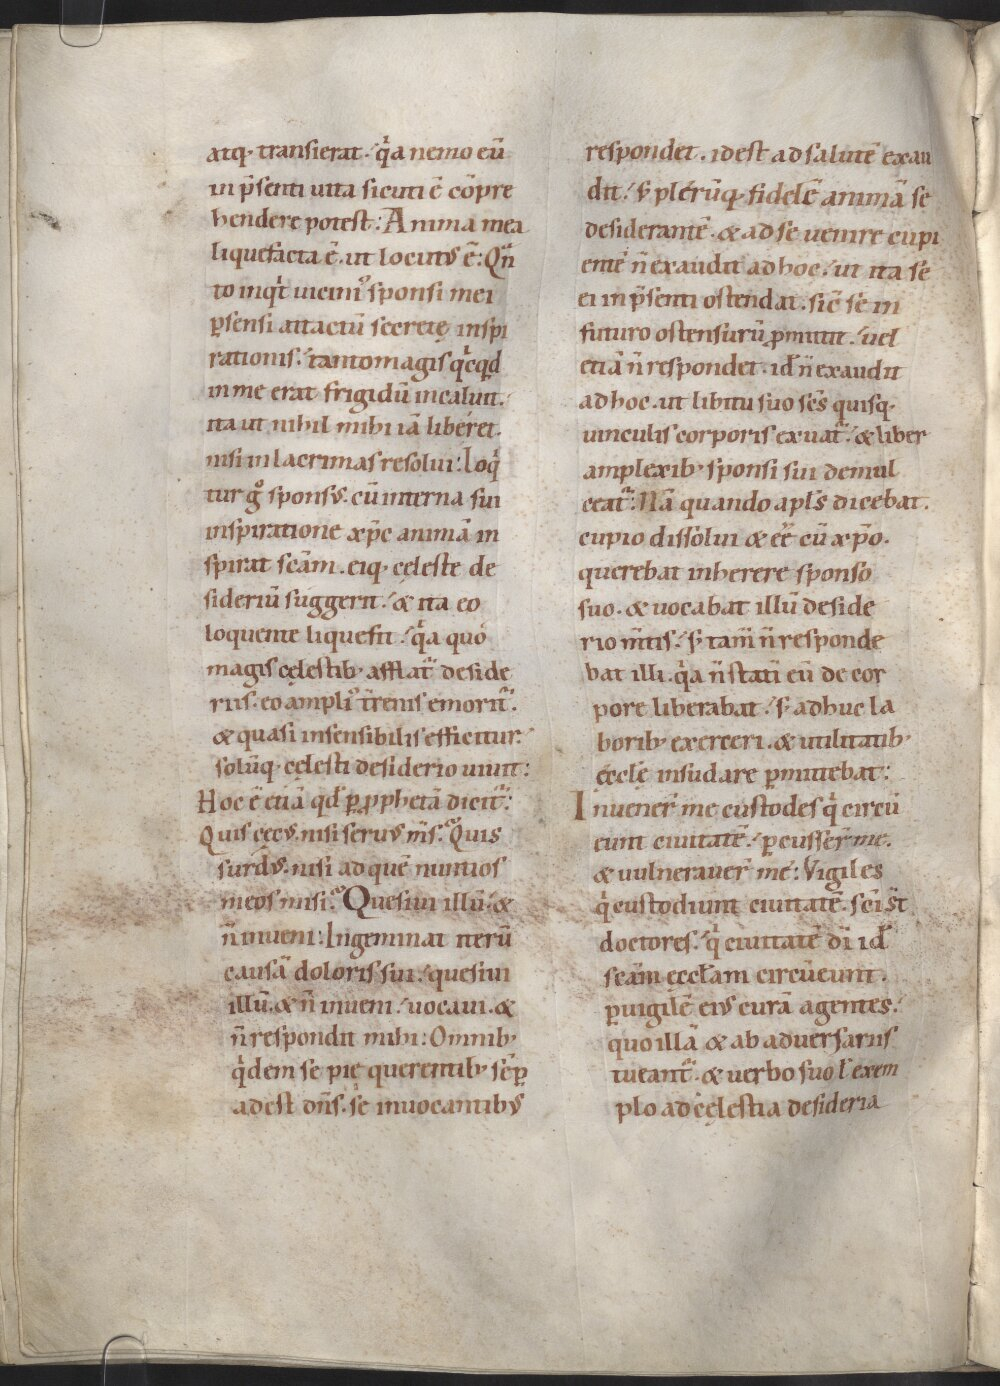 atq; transierat. q̇a nemo eū
in p̄senti uita sicuti ē cōpre
hendere potest: Anima mea
liquefacta ē. ut locutꝰ ē: Qn̄
to inqͥt uicini᷒ sponsi mei
ꝑsensi attactū secretę inspi
rationis. tantomagis qͥcqd
in me erat frigidū incaluit.
ita ut nihil mihi iā liberet.
nisi in lacrimas resolui: Loqͥ
tur gͦ sponsꝰ. cū interna sui
inspiratione xp̄c animā in
spirat scām. eiq; cęleste de
sideriū suggerit. & ita eo
loquente liquefit. qͥa quo
magis cęlestib; afflat᷑ deside
riis. eo ampliꝰ t̄renis emorit᷑.
& quasi insensibilis efficitur.
solūq; cęlesti desiderio uiuit:
Hoc ē etiā qd̄ ꝑ ꝓphetā dicit᷑:
Quis cęcꝰ. nisi seruꝰ m̄s. Quis
surdꝰ. nisi ad quē nuntios
meos misi. Quesiui illū. &
n̄ inueni: Ingeminat iterū
causā doloris sui. quesiui
illū. & n̄ inueni. uocaui. &
n̄ respondit mihi: Omnib;
qͥdem se pie querentib; sēꝑ
adest dn̄s. se inuocantibꝰ
respondet. id est ad salutē exau
dit. s; plerūq; fidelē animā se
desiderantē. & ad se uenire cupi
entē n̄ exaudit ad hoc. ut ita se
ei in p̄senti ostendat. sic̄ se in
futuro ostensurū ꝓmittit. uel
etiā n̄ respondet. id̄ n̄ exaudit
ad hoc. ut libitu suo sēs quisq;
uinculis corporis exuat᷑. & liber
amplexib; sponsi sui demul
ceat᷑: Nā quando apl̄s dicebat.
cupio dissolui & ēē cū xp̄o.
querebat inherere sponso
suo. & uocabat illū deside
rio m̄tis. s; tam̄ n̄ responde
bat illi. qͥa n̄ statī eū de cor
pore liberabat. s; adhuc la
borib; exerceri. & utilitatib;
eccl̄ę insudare ꝑmittebat:
Inuener̄ me custodes qͥ circū
eunt ciuitatē. ꝑcusser̄ me.
& uulnerauer̄ me: Vigiles
qͥ custodiunt ciuitatē. sc̄i s̄t
doctores. qͥ ciuitatē dī id̄
scām eccl̄am circūeunt.
ꝑuigilē eiꝰ curā agentes.
quo illā & ab aduersariis
tueant᷑. & uerbo suo l̄ exem
plo ad cęlestia desideria